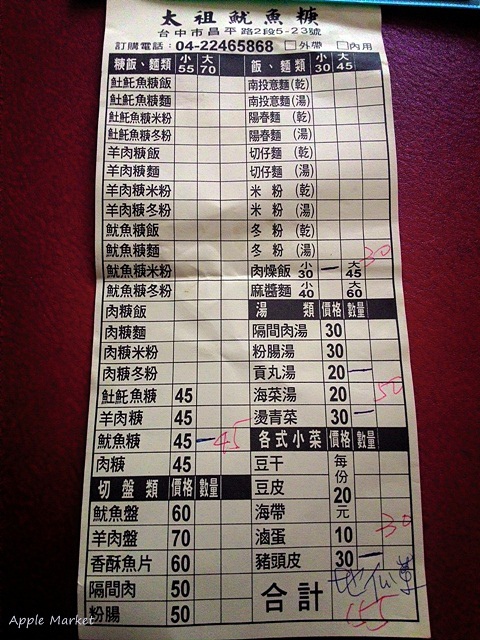 太祖魷魚糠
台中市昌平路2段5-23號
訂購電話：04-22465868 □外帶 □內用
糠飯、麵類 小55 大70
魠魠魚糠飯
魠魠魚糠麵
魠魠魚糠米粉
魠魠魚糠冬粉
羊肉糠飯
羊肉糠麵
羊肉糠米粉
羊肉糠冬粉
魷魚糠飯
魷魚糠麵
魷魚糠米粉
魷魚糠冬粉
肉糠飯
肉糠麵
肉糠米粉
肉糠冬粉
魠魠魚糠 45
羊肉糠 45
魷魚糠 45 一 45
肉糠 45
切盤類 價格 數量
魷魚盤 60
羊肉盤 70
香酥魚片 60
隔間肉 50
粉腸 50
飯、麵類 小30 大45
南投意麵 (乾)
南投意麵 (湯)
陽春麵 (乾)
陽春麵 (湯)
切仔麵 (乾)
切仔麵 (湯)
米粉 (乾)
米粉 (湯)
冬粉 (乾)
冬粉 (湯)
肉燥飯 小30 一 大45 30
麻醬麵 小40 大60
湯類 價格 數量
隔間肉湯 30
粉腸湯 30
貢丸湯 20 一
海菜湯 20 50
燙青菜 30 一
各式小菜 價格 數量
豆干 每份20元
豆皮
海帶
滷蛋 10
豬頭皮 30 一 30
合計 155
Apple Market